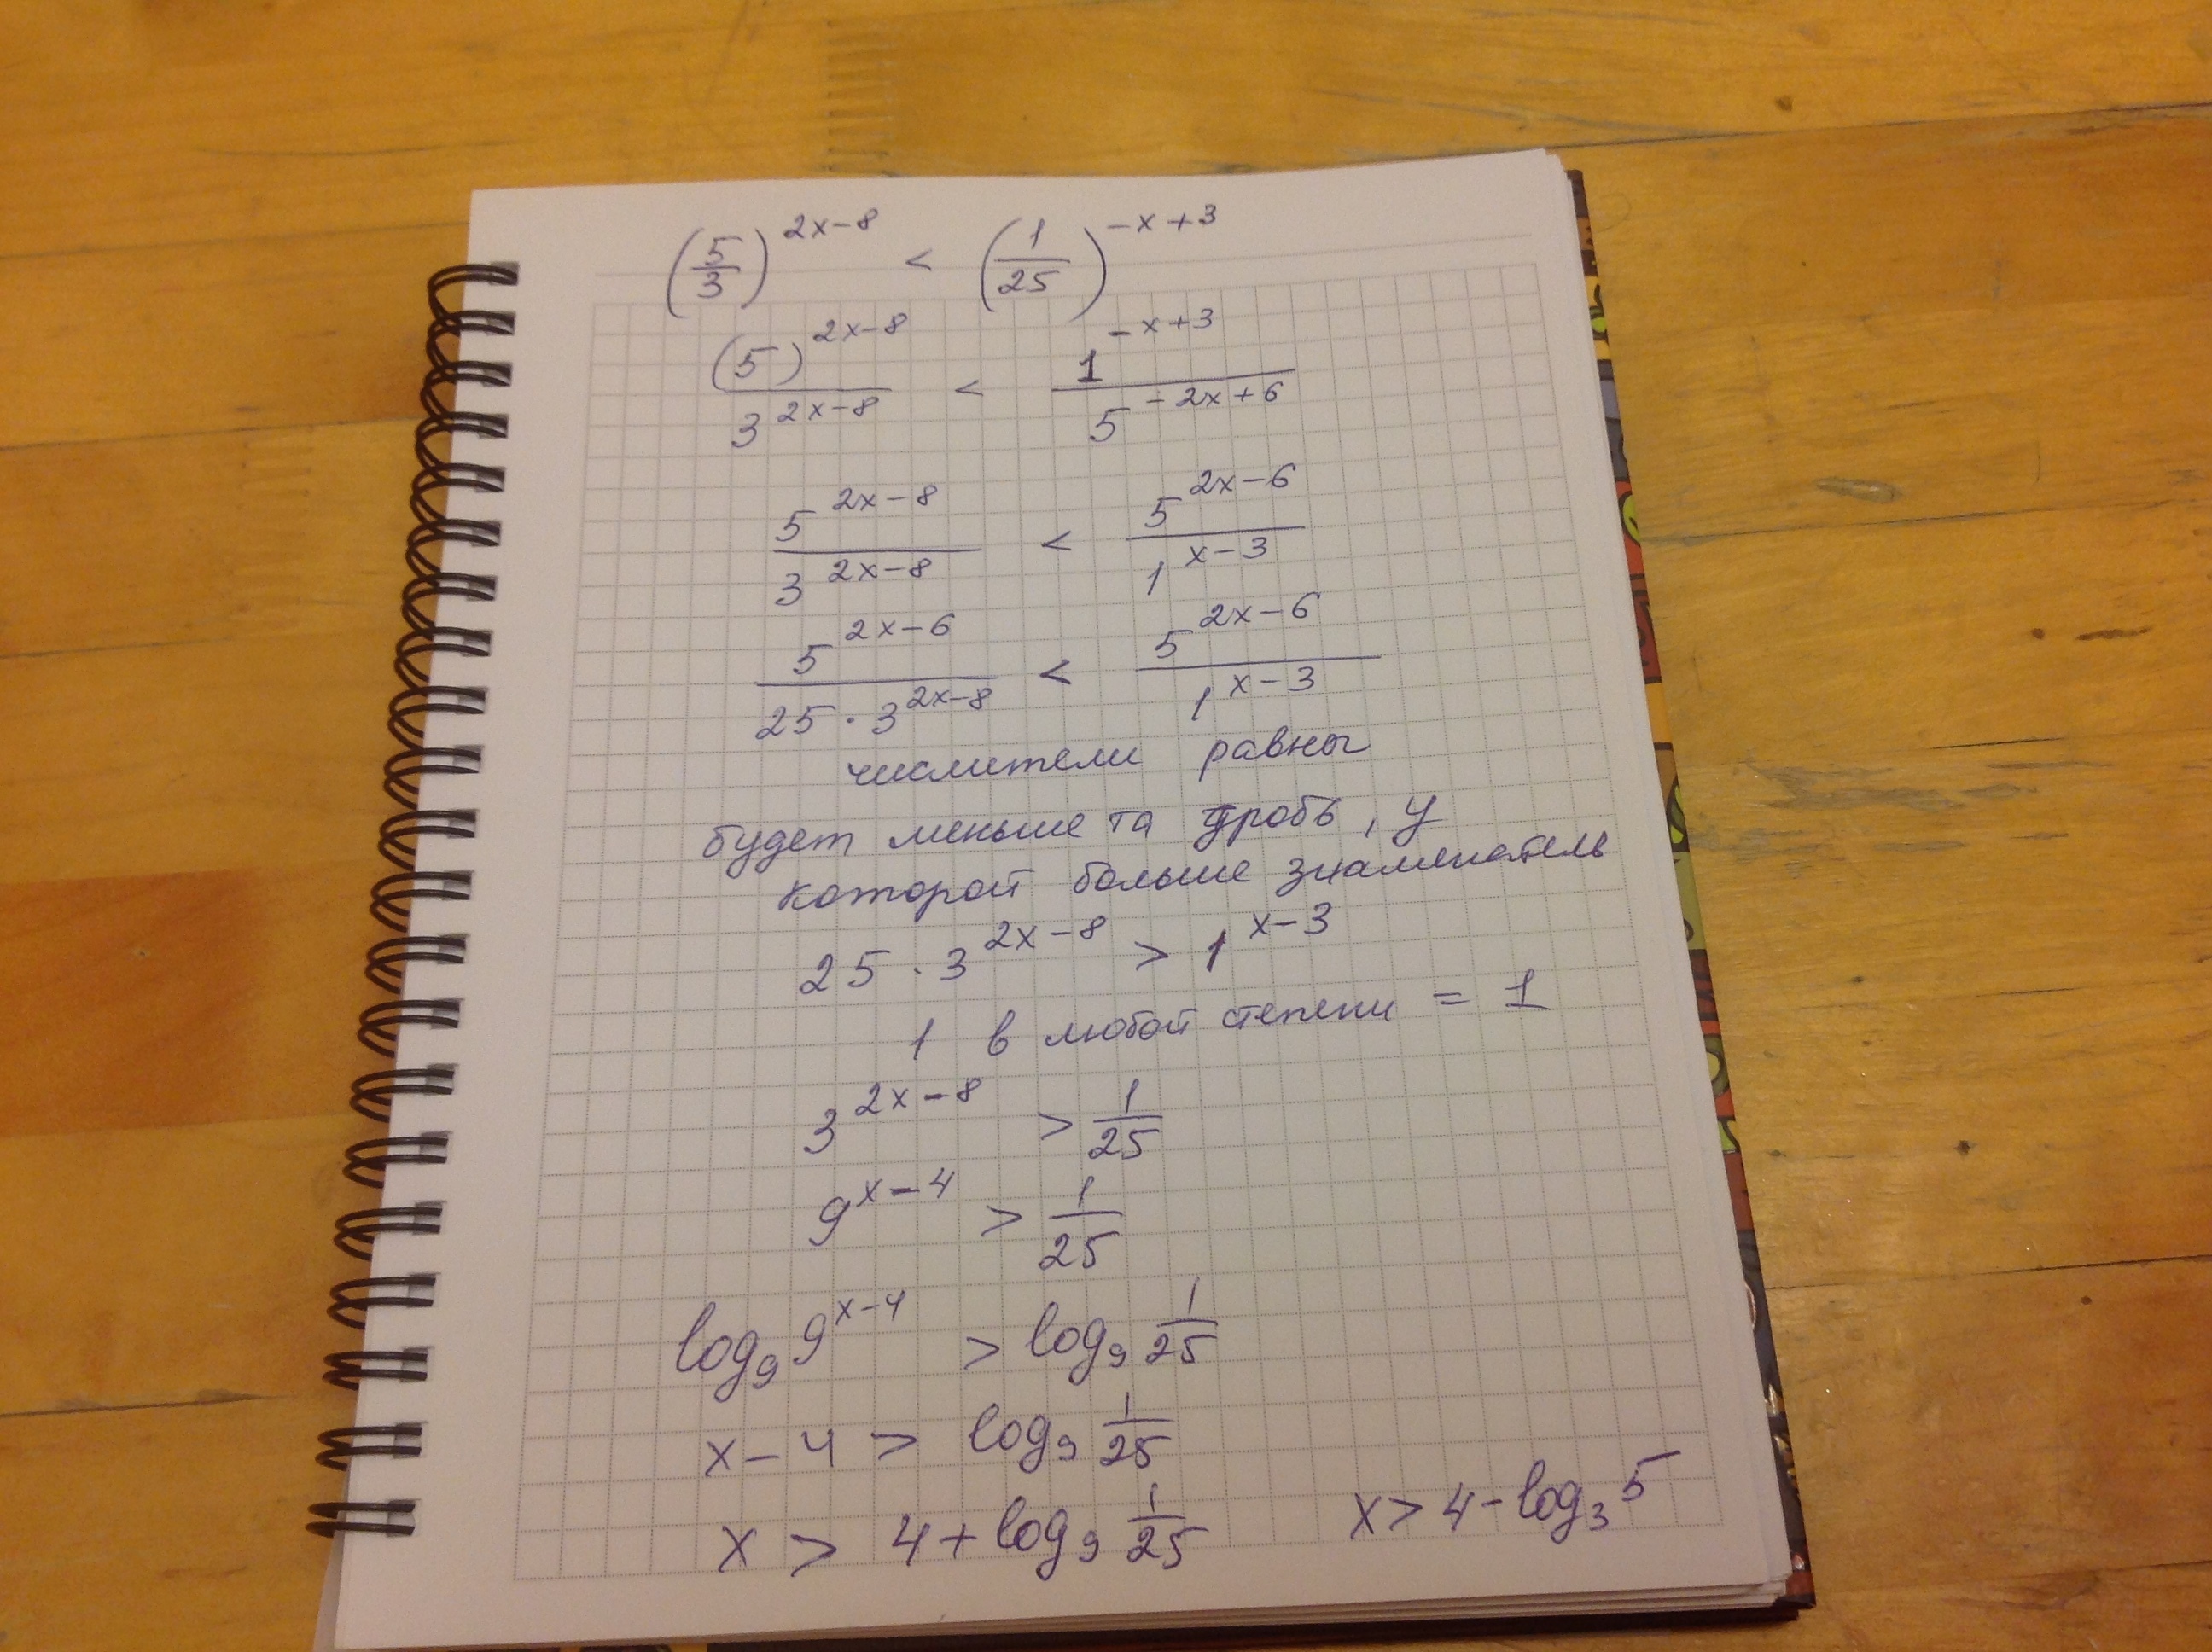 (5/3)^(2x-8) < (1/25)^(-x+3)
(5)^(2x-8)/3^(2x-8) < 1^(-x+3)/5^(-2x+6)
5^(2x-8)/3^(2x-8) < 5^(2x-6)/1^(x-3)
5^(2x-6)/25·3^(2x-8) < 5^(2x-6)/1^(x-3)
числители равны
будет меньше та дробь, у
которой больше знаменатель
25·3^(2x-8) > 1^(x-3)
1 в любой степени = 1
3^(2x-8) > 1/25
9^(x-4) > 1/25
log₉ 9^(x-4) > log₉ 1/25
x-4 > log₉ 1/25
x > 4+log₉ 1/25 x > 4-log₃ 5